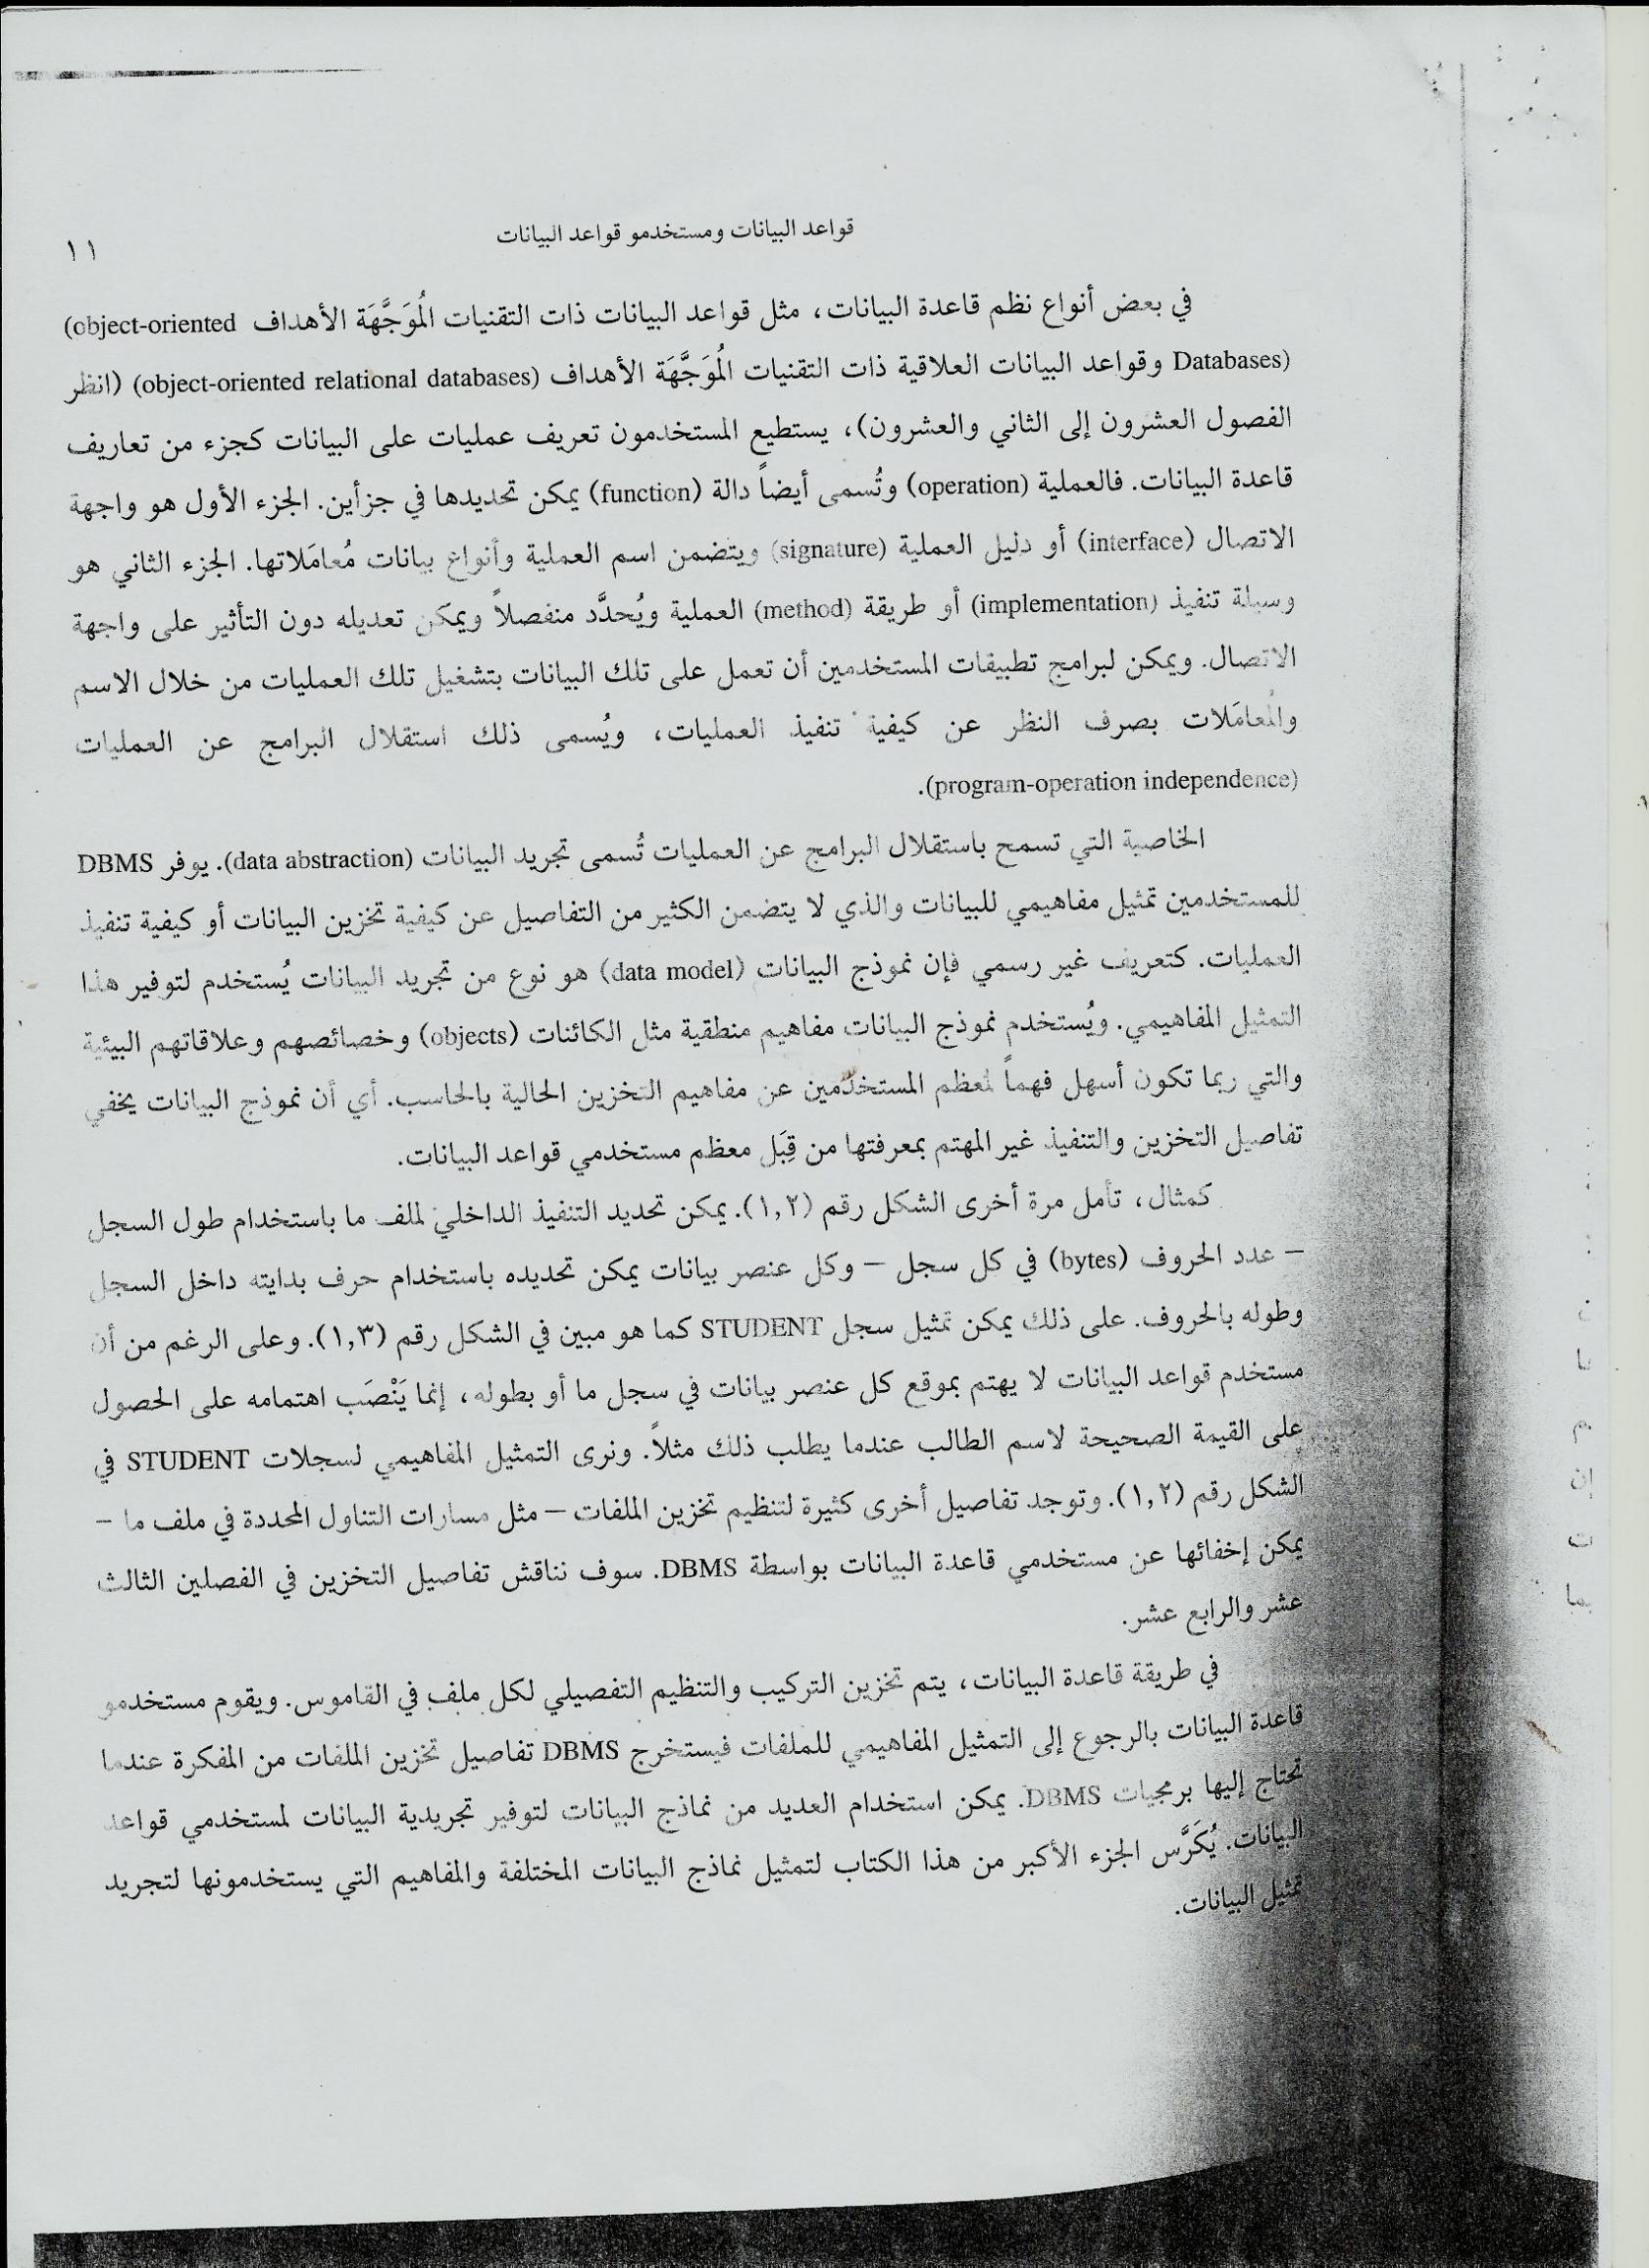 قواعد البيانات ومستخدمو قواعد البيانات
١١
في بعض أنواع نظم قاعدة البيانات، مثل قواعد البيانات ذات التقنيات المُوَجَّهَة الأهداف (object-oriented
Databases) وقواعد البيانات العلاقية ذات التقنيات المُوَجَّهَة الأهداف (object-oriented relational databases) (انظر
الفصول العشرون إلى الثاني والعشرون)، يستطيع المستخدمون تعريف عمليات على البيانات كجزء من تعاريف
قاعدة البيانات. فالعملية (operation) وتُسمى أيضاً دالة (function) يمكن تحديدها في جزأين. الجزء الأول هو واجهة
الاتصال (interface) أو دليل العملية (signature) ويتضمن اسم العملية وأنواع بيانات مُعامَلاتها. الجزء الثاني هو
وسيلة تنفيذ (implementation) أو طريقة (method) العملية ويُحدَّد منفصلاً ويمكن تعديله دون التأثير على واجهة
الاتصال. ويمكن لبرامج تطبيقات المستخدمين أن تعمل على تلك البيانات بتشغيل تلك العمليات من خلال الاسم
والمُعامَلات بصرف النظر عن كيفية تنفيذ العمليات، ويُسمى ذلك استقلال البرامج عن العمليات
(program-operation independence).
الخاصية التي تسمح باستقلال البرامج عن العمليات تُسمى تجريد البيانات (data abstraction). يوفر DBMS
للمستخدمين تمثيل مفاهيمي للبيانات والذي لا يتضمن الكثير من التفاصيل عن كيفية تخزين البيانات أو كيفية تنفيذ
العمليات. كتعريف غير رسمي فإن نموذج البيانات (data model) هو نوع من تجريد البيانات يُستخدم لتوفير هذا
التمثيل المفاهيمي. ويُستخدم نموذج البيانات مفاهيم منطقية مثل الكائنات (objects) وخصائصهم وعلاقاتهم البيئية
والتي ربما تكون أسهل فهماً لمعظم المستخدمين عن مفاهيم التخزين الحالية بالحاسب. أي أن نموذج البيانات يخفي
تفاصيل التخزين والتنفيذ غير المهتم بمعرفتها من قِبَل معظم مستخدمي قواعد البيانات.
كمثال، تأمل مرة أخرى الشكل رقم (١,٢). يمكن تحديد التنفيذ الداخلي لملف ما باستخدام طول السجل
– عدد الحروف (bytes) في كل سجل – وكل عنصر بيانات يمكن تحديده باستخدام حرف بدايته داخل السجل
وطوله بالحروف. على ذلك يمكن تمثيل سجل STUDENT كما هو مبين في الشكل رقم (١,٣). وعلى الرغم من أن
مستخدم قواعد البيانات لا يهتم بموقع كل عنصر بيانات في سجل ما أو بطوله، إنما يَنْصَب اهتمامه على الحصول
على القيمة الصحيحة لاسم الطالب عندما يطلب ذلك مثلاً. ونرى التمثيل المفاهيمي لسجلات STUDENT في
الشكل رقم (١,٢). وتوجد تفاصيل أخرى كثيرة لتنظيم تخزين الملفات – مثل مسارات التناول المحددة في ملف ما –
يمكن إخفائها عن مستخدمي قاعدة البيانات بواسطة DBMS. سوف نناقش تفاصيل التخزين في الفصلين الثالث
عشر والرابع عشر.
في طريقة قاعدة البيانات، يتم تخزين التركيب والتنظيم التفصيلي لكل ملف في القاموس. ويقوم مستخدمو
قاعدة البيانات بالرجوع إلى التمثيل المفاهيمي للملفات فيستخرج DBMS تفاصيل تخزين الملفات من المفكرة عندما
تحتاج إليها برمجيات DBMS. يمكن استخدام العديد من نماذج البيانات لتوفير تجريدية البيانات لمستخدمي قواعد
البيانات. يُكَرَّس الجزء الأكبر من هذا الكتاب لتمثيل نماذج البيانات المختلفة والمفاهيم التي يستخدمونها لتجريد
تمثيل البيانات.